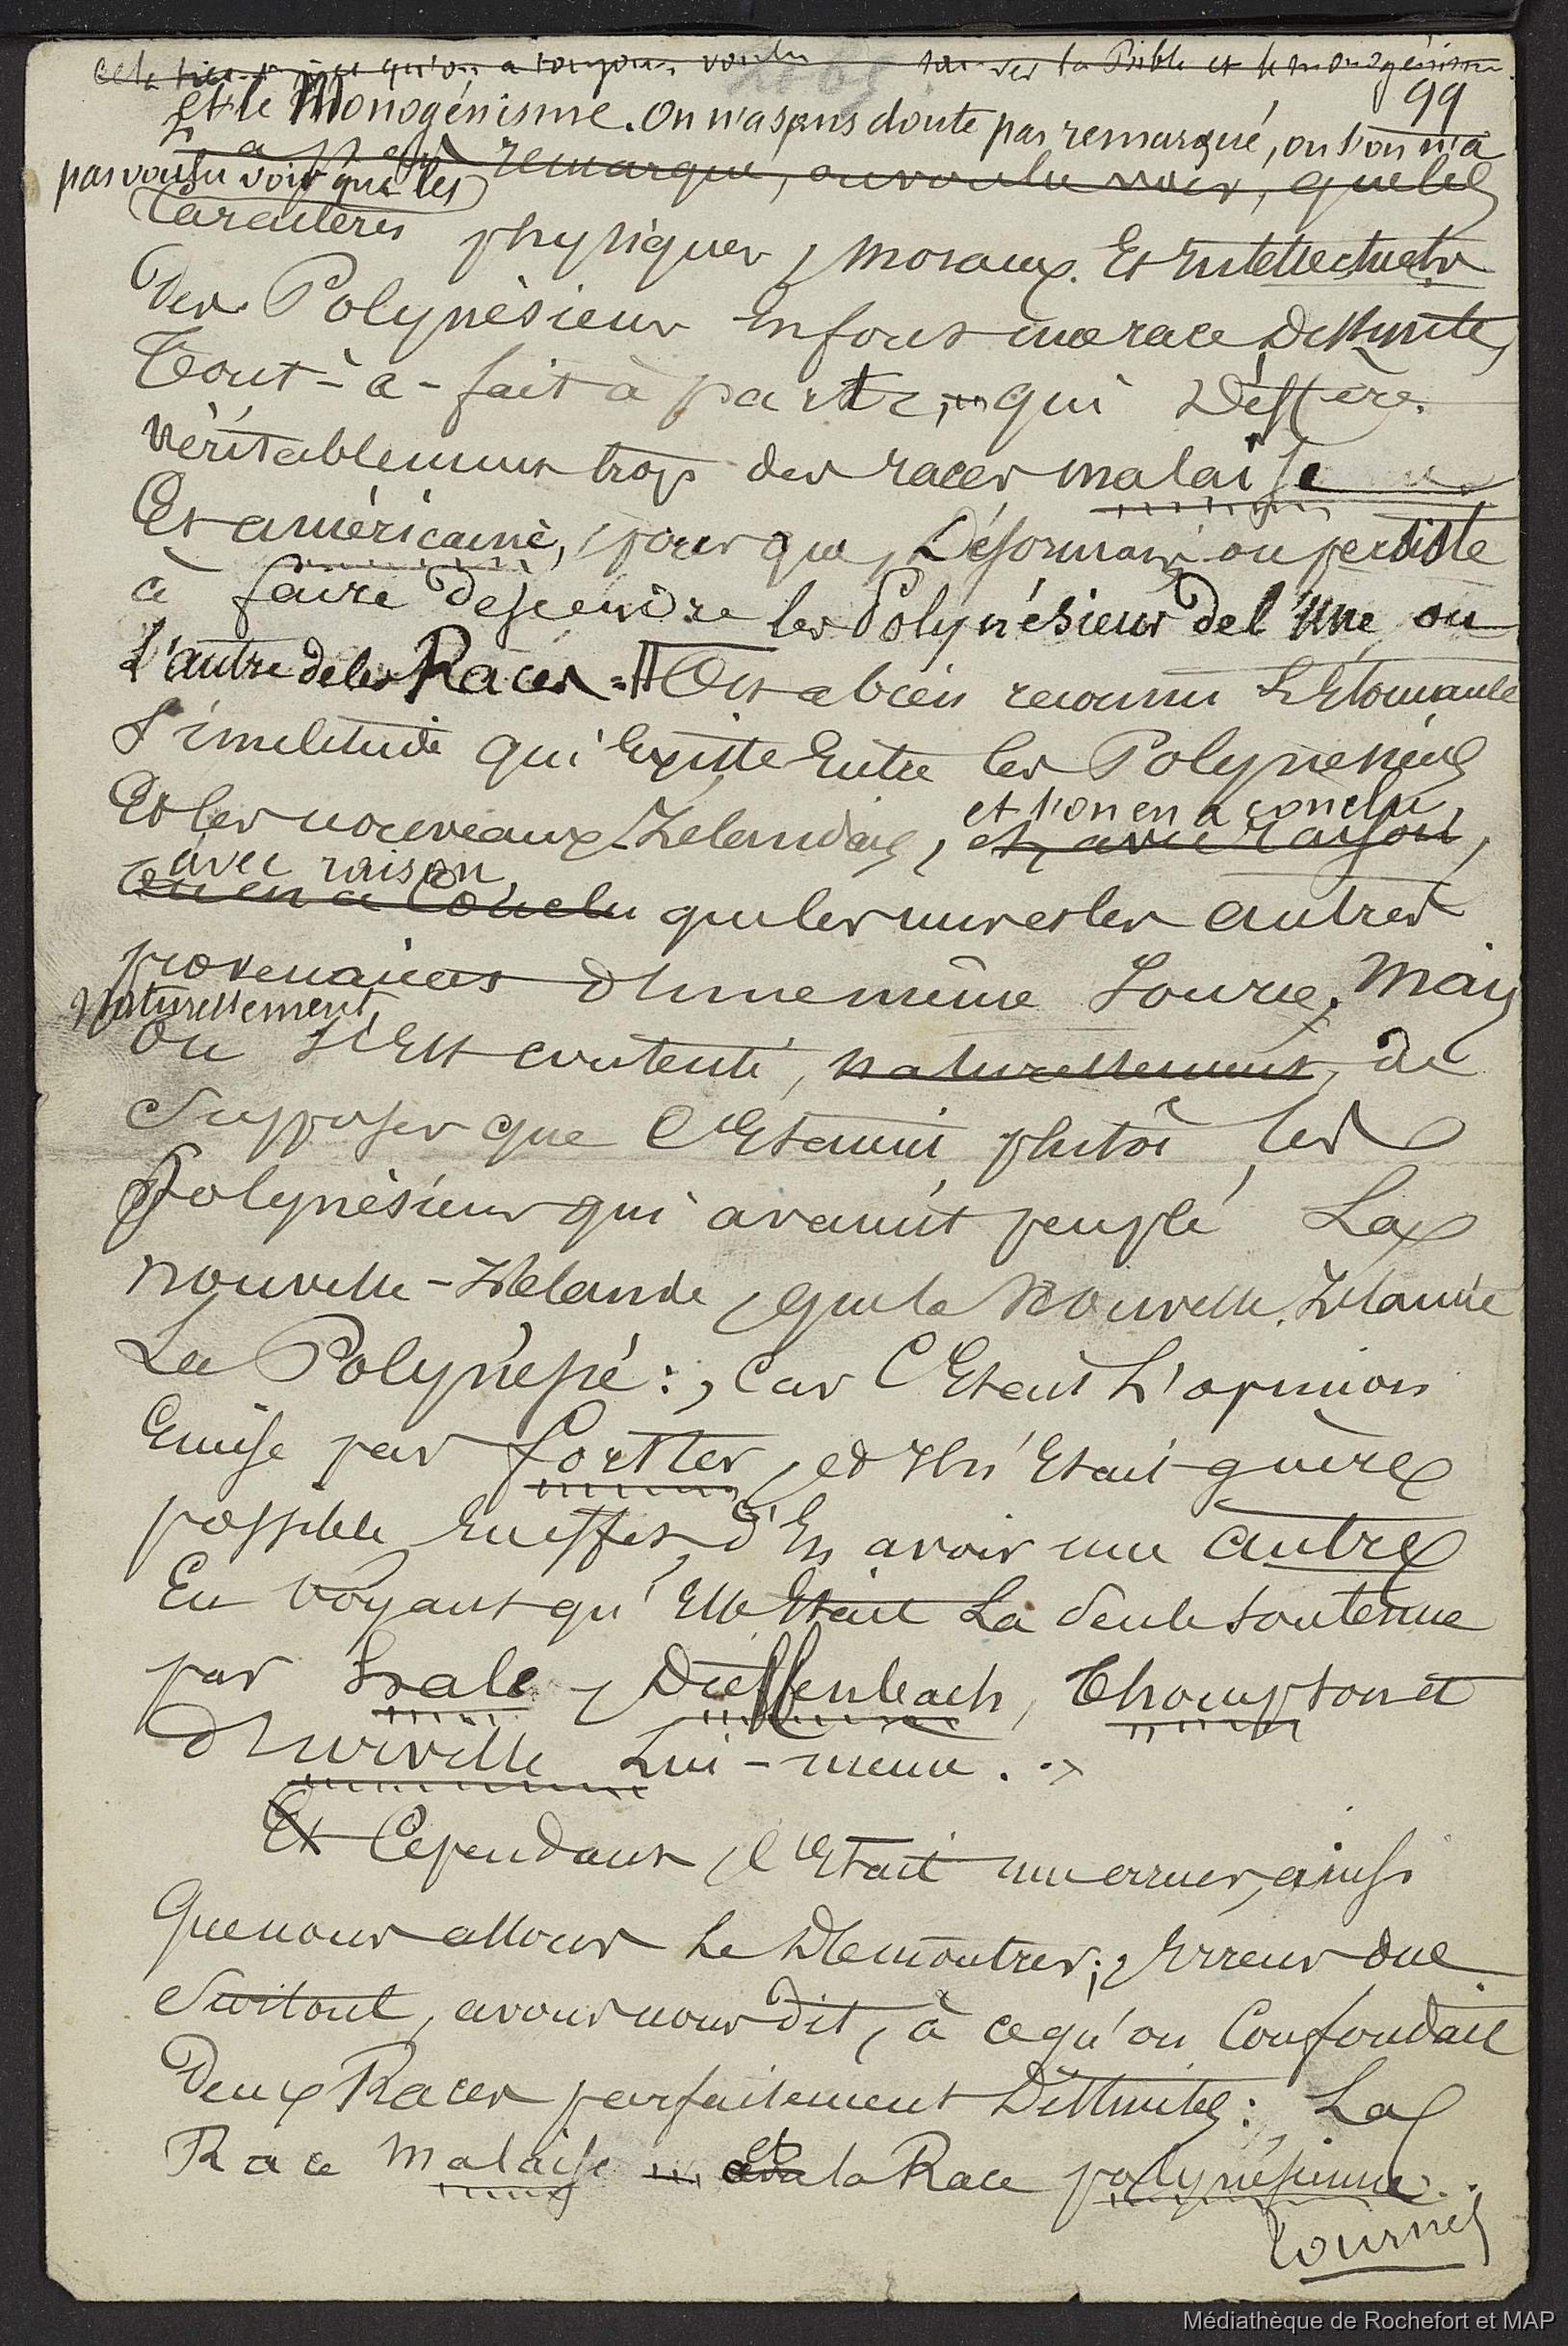 qu'on a toujours voulu la Bible et le monogénisme
99
et le Monogénisme. On n'a sans doute pas remarqué, ou l'on n'a
remarqué, ou voulu voir, que les
pas voulu voir que les
Caractères physiques, moraux et Intellectuels
des Polynésiens en font une race distincte,
Tout-à-fait à part, qui diffère
véritablement trop des races malaise
Et américaine, pour que, désormais on persiste
à faire descendre les Polynésiens de l'une ou
l'autre de ces Races. = On a bien reconnu l'Etonnante
Similitude qui Existe Entre les Polynésiens
et l'on en a conclu,
Et les nouveaux-Zélandais, et, avec raison,
avec raison,
on en a Conclu que les uns et les autres
provenaient d'une même Source. Mais
Naturellement,
on s'Est contenté, naturellement, de
Supposer que c'Etaient plutôt les
Polynésiens qui avaient peuplé La
Nouvelle-Zélande, que la Nouvelle Zélande
La Polynésie : car c'Etait L'opinion
Emise par Forster, et Il n'Etait guère
possible En effet, d'En avoir une autre
En Voyant qu'Elle Etait La Seule soutenue
par Hale, Dieffenbach, Thompson et
d'Urville Lui-même.
Et Cependant, c'Etait une erreur, ainsi
Que nous allons Le Démontrer ; Erreur due
Surtout, avons nous dit, à ce qu'on Confondait
Deux Races parfaitement Distinctes : La
et
Race Malaise la Race polynésienne.
Tournez
Médiathèque de Rochefort et MAP